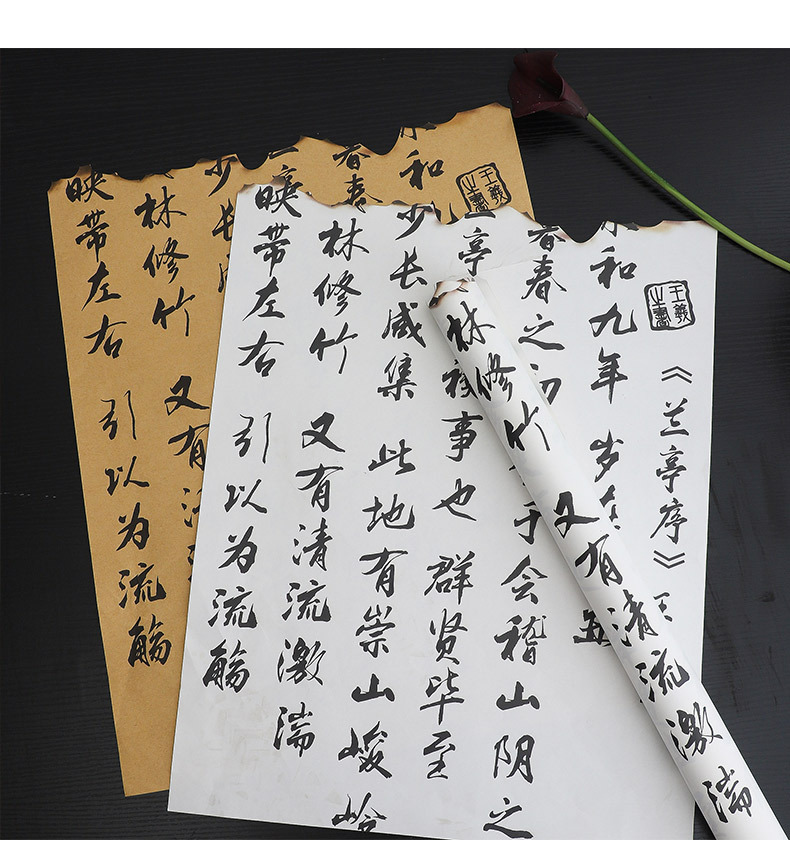 王羲
之書
《兰亭序》
和九年 岁
春之初 会稽山阴之
亭 禊事也 群贤毕至
少长咸集 此地有崇山峻岭
林修竹 又有清流激湍
映带左右 引以为流觞
林修竹 又有清流激湍
王羲
之書
和九
春
少长
林修竹 又有清
映带左右 引以为流觞